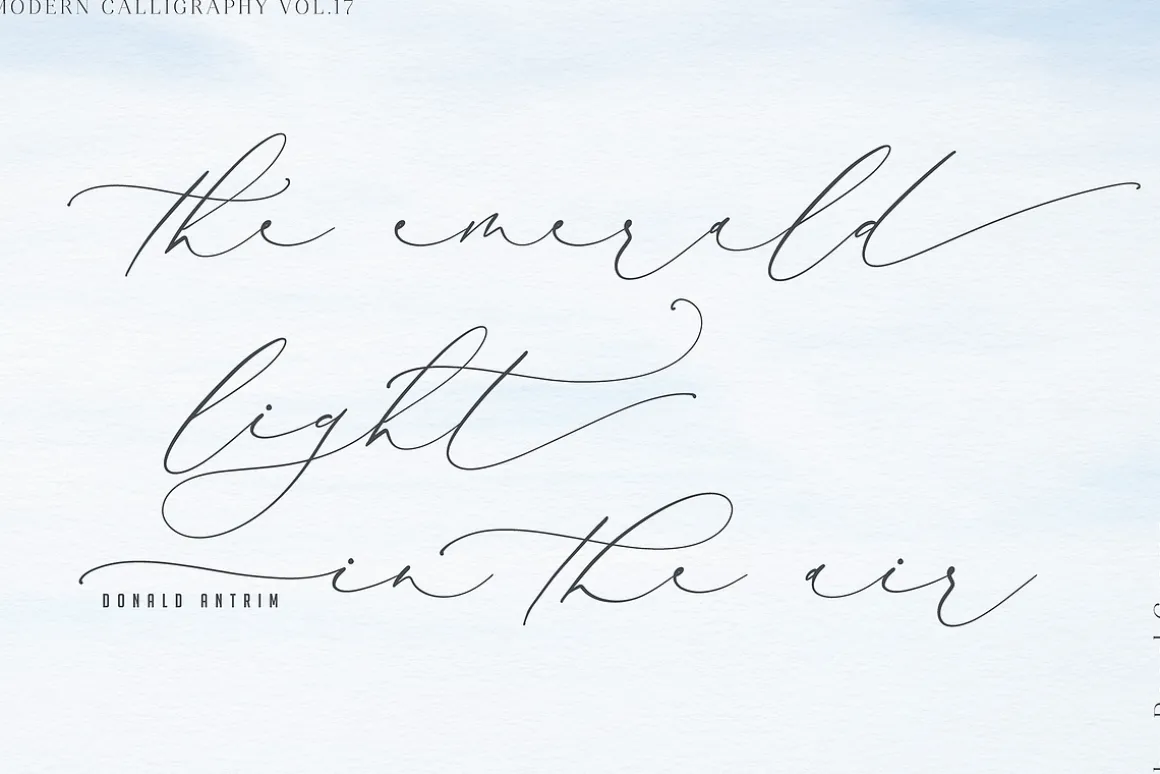 MODERN CALLIGRAPHY VOL.17
the emerald
light
in the air
DONALD ANTRIM